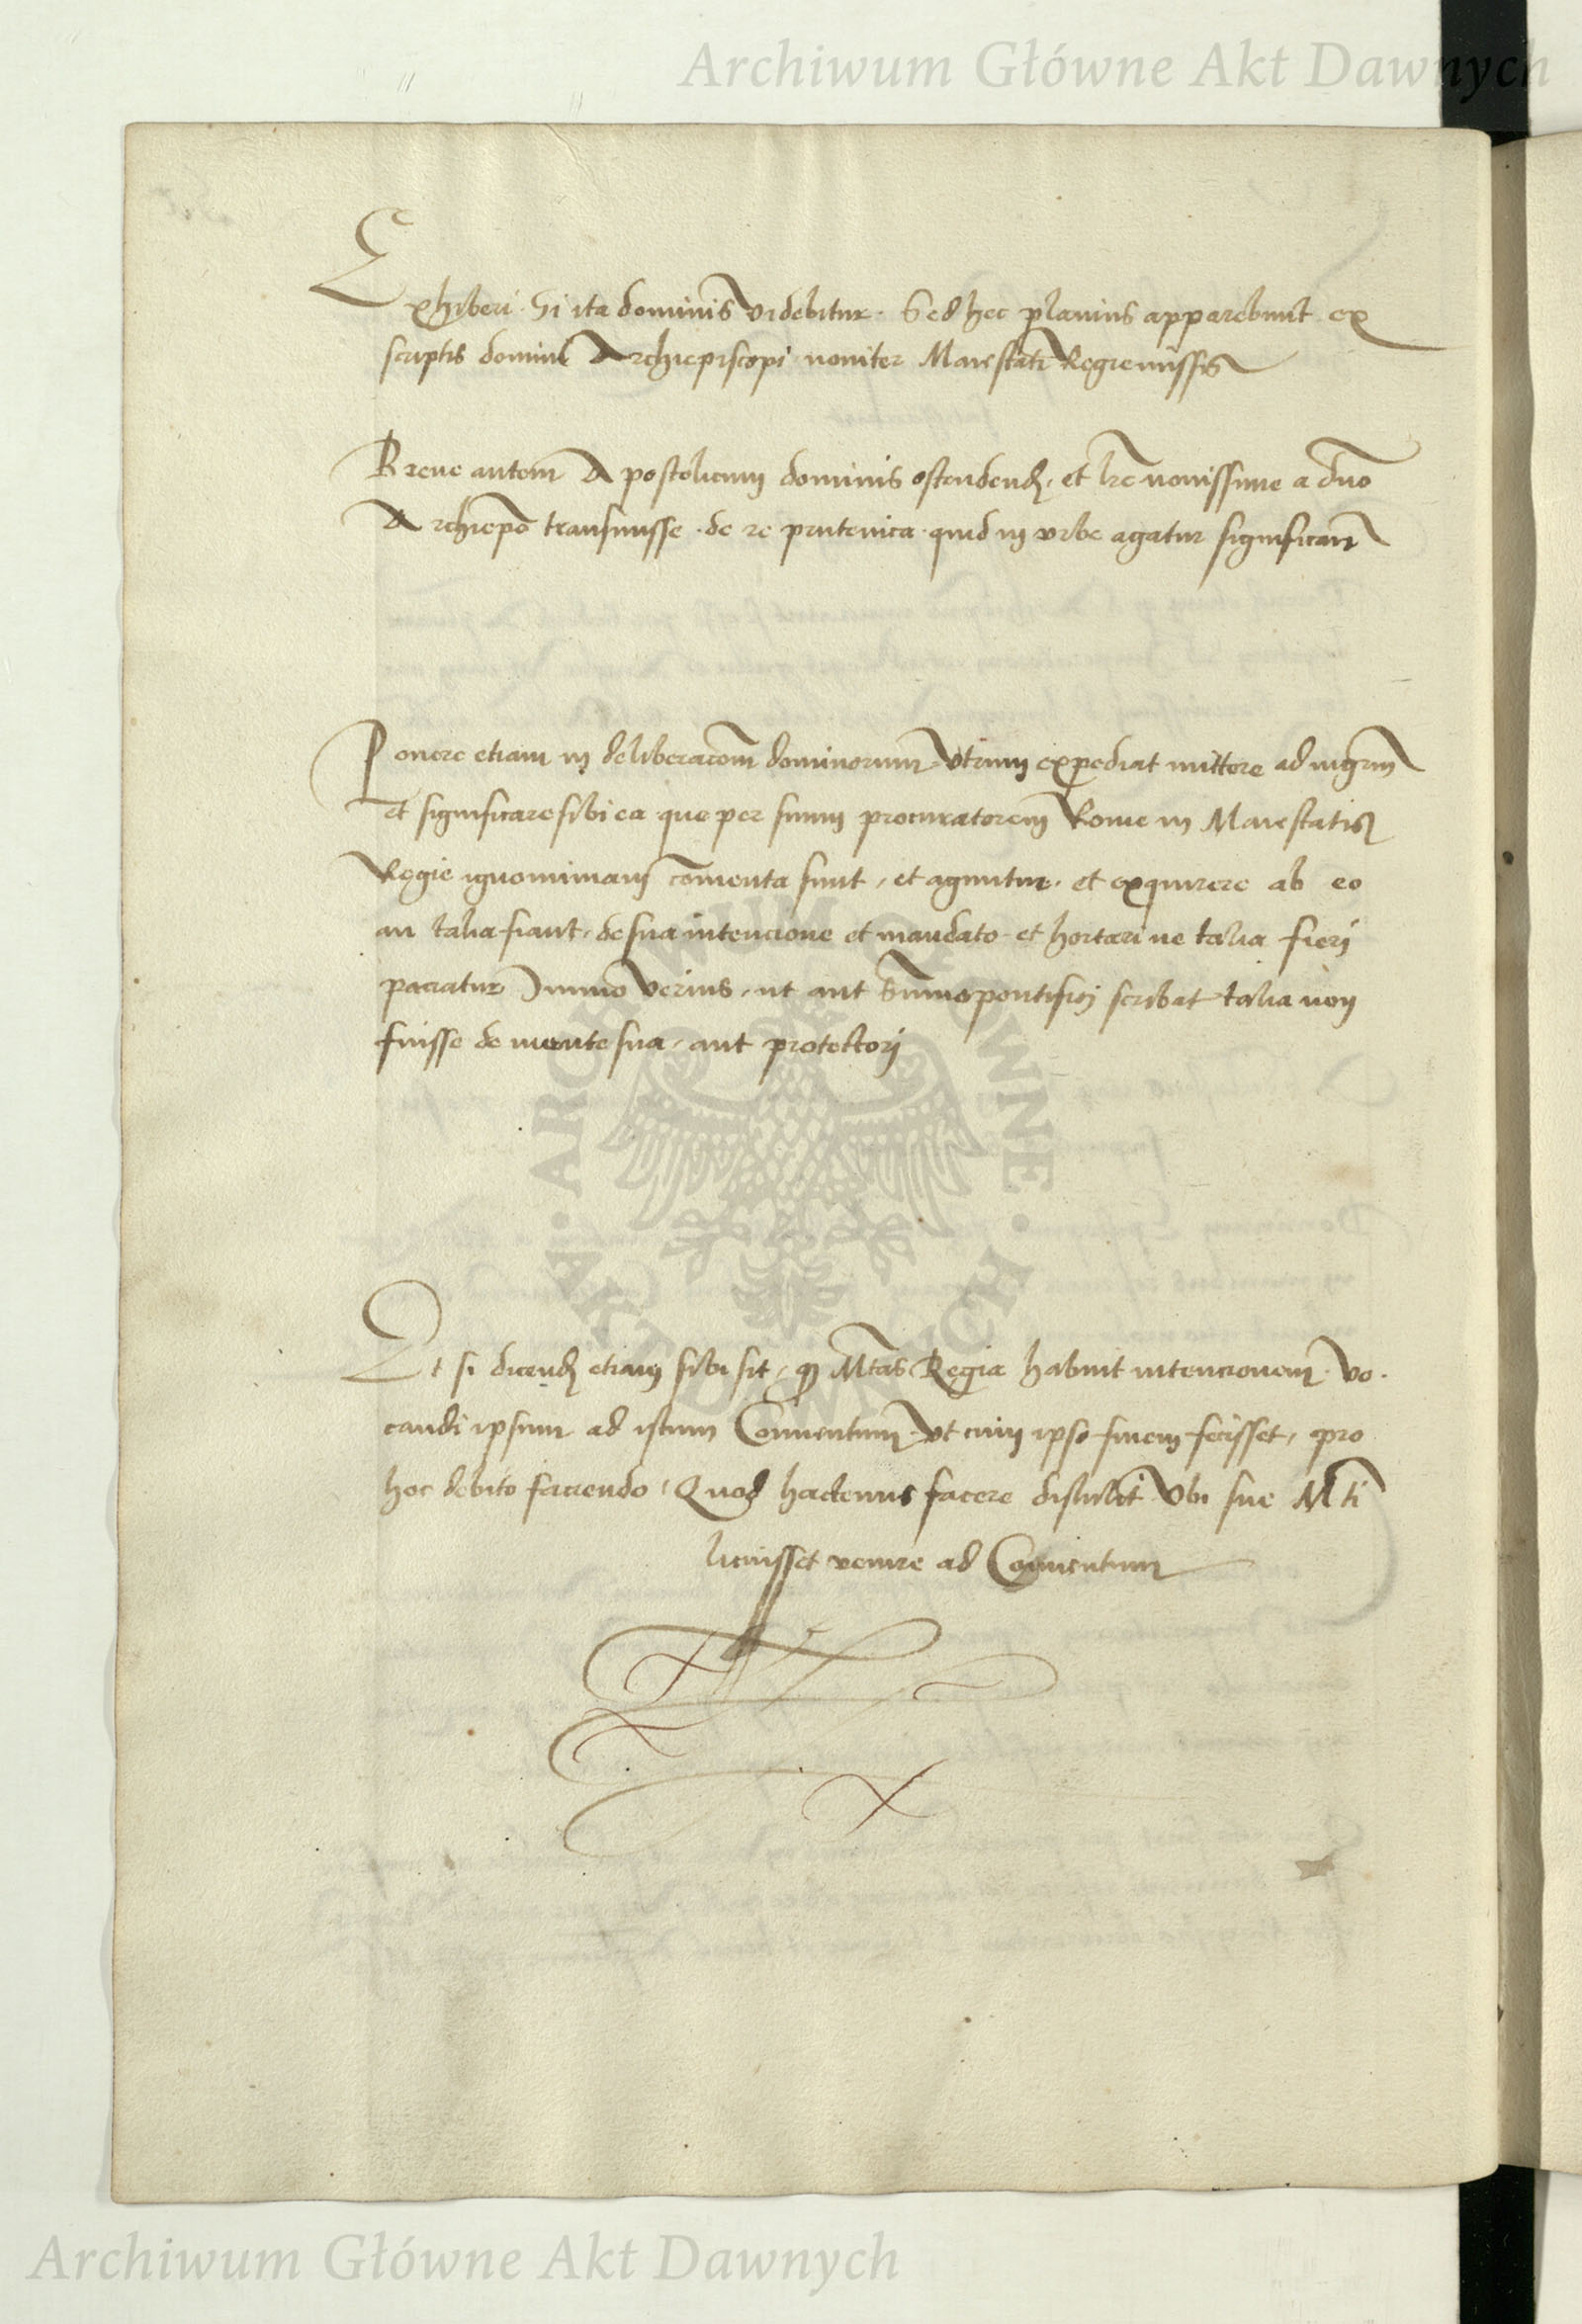 Archiwum Główne Akt Dawnych
Exhiberi. Si ita dominis videbitur. Sed hec planius apparebunt ex
scriptis domini Archiepiscopi noviter Maiestati Regie missis
Breve autem Apostolicum dominis ostendend, et lre novissime a dno
Archiepo transmisse. de re prutenica. quid in urbe agatur significant
Ponere etiam in deliberacom dominorum Utrum expediat mittere ad mgrm
et significare sibi ea que per suum procuratorem Rome in Maiestatis
Regie ignominiam comenta sunt, et aguntur. et exquirere ab eo
an talia fiant, de sua intencione et mandato et hortari ne talia fieri
paciatur Immo Verius, ut aut Summo pontifici scribat talia non
fuisse de mente sua, aut protectori
Et si dicend etiam sibi sit, q Mtas Regia habuit intencionem vo.
candi ipsum ad istum Conventum Ut cum ipso finem fecisset, pro
hoc debito faciendo, Quod hactenus facere distulit Ubi sue Mti
licuisset venire ad Conventum
ARCHIWUM GŁÓWNE AKT DAWNYCH
Archiwum Główne Akt Dawnych